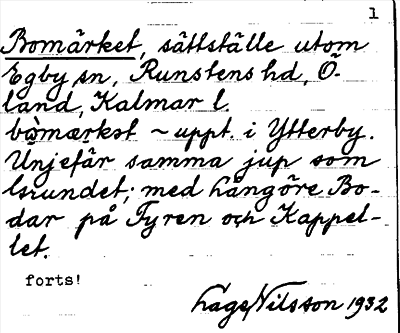 1
Bomärket, sättställe utom
Egby sn, Runstens hd, Ö-
land, Kalmar l.
bòmærkət ~ uppt. i Ytterby.
Unjefär samma jup som
lsrundet; med hångöre Bo-
dar på Fyren och Kappel-
let.
forts!
Lage Nilsson 1932